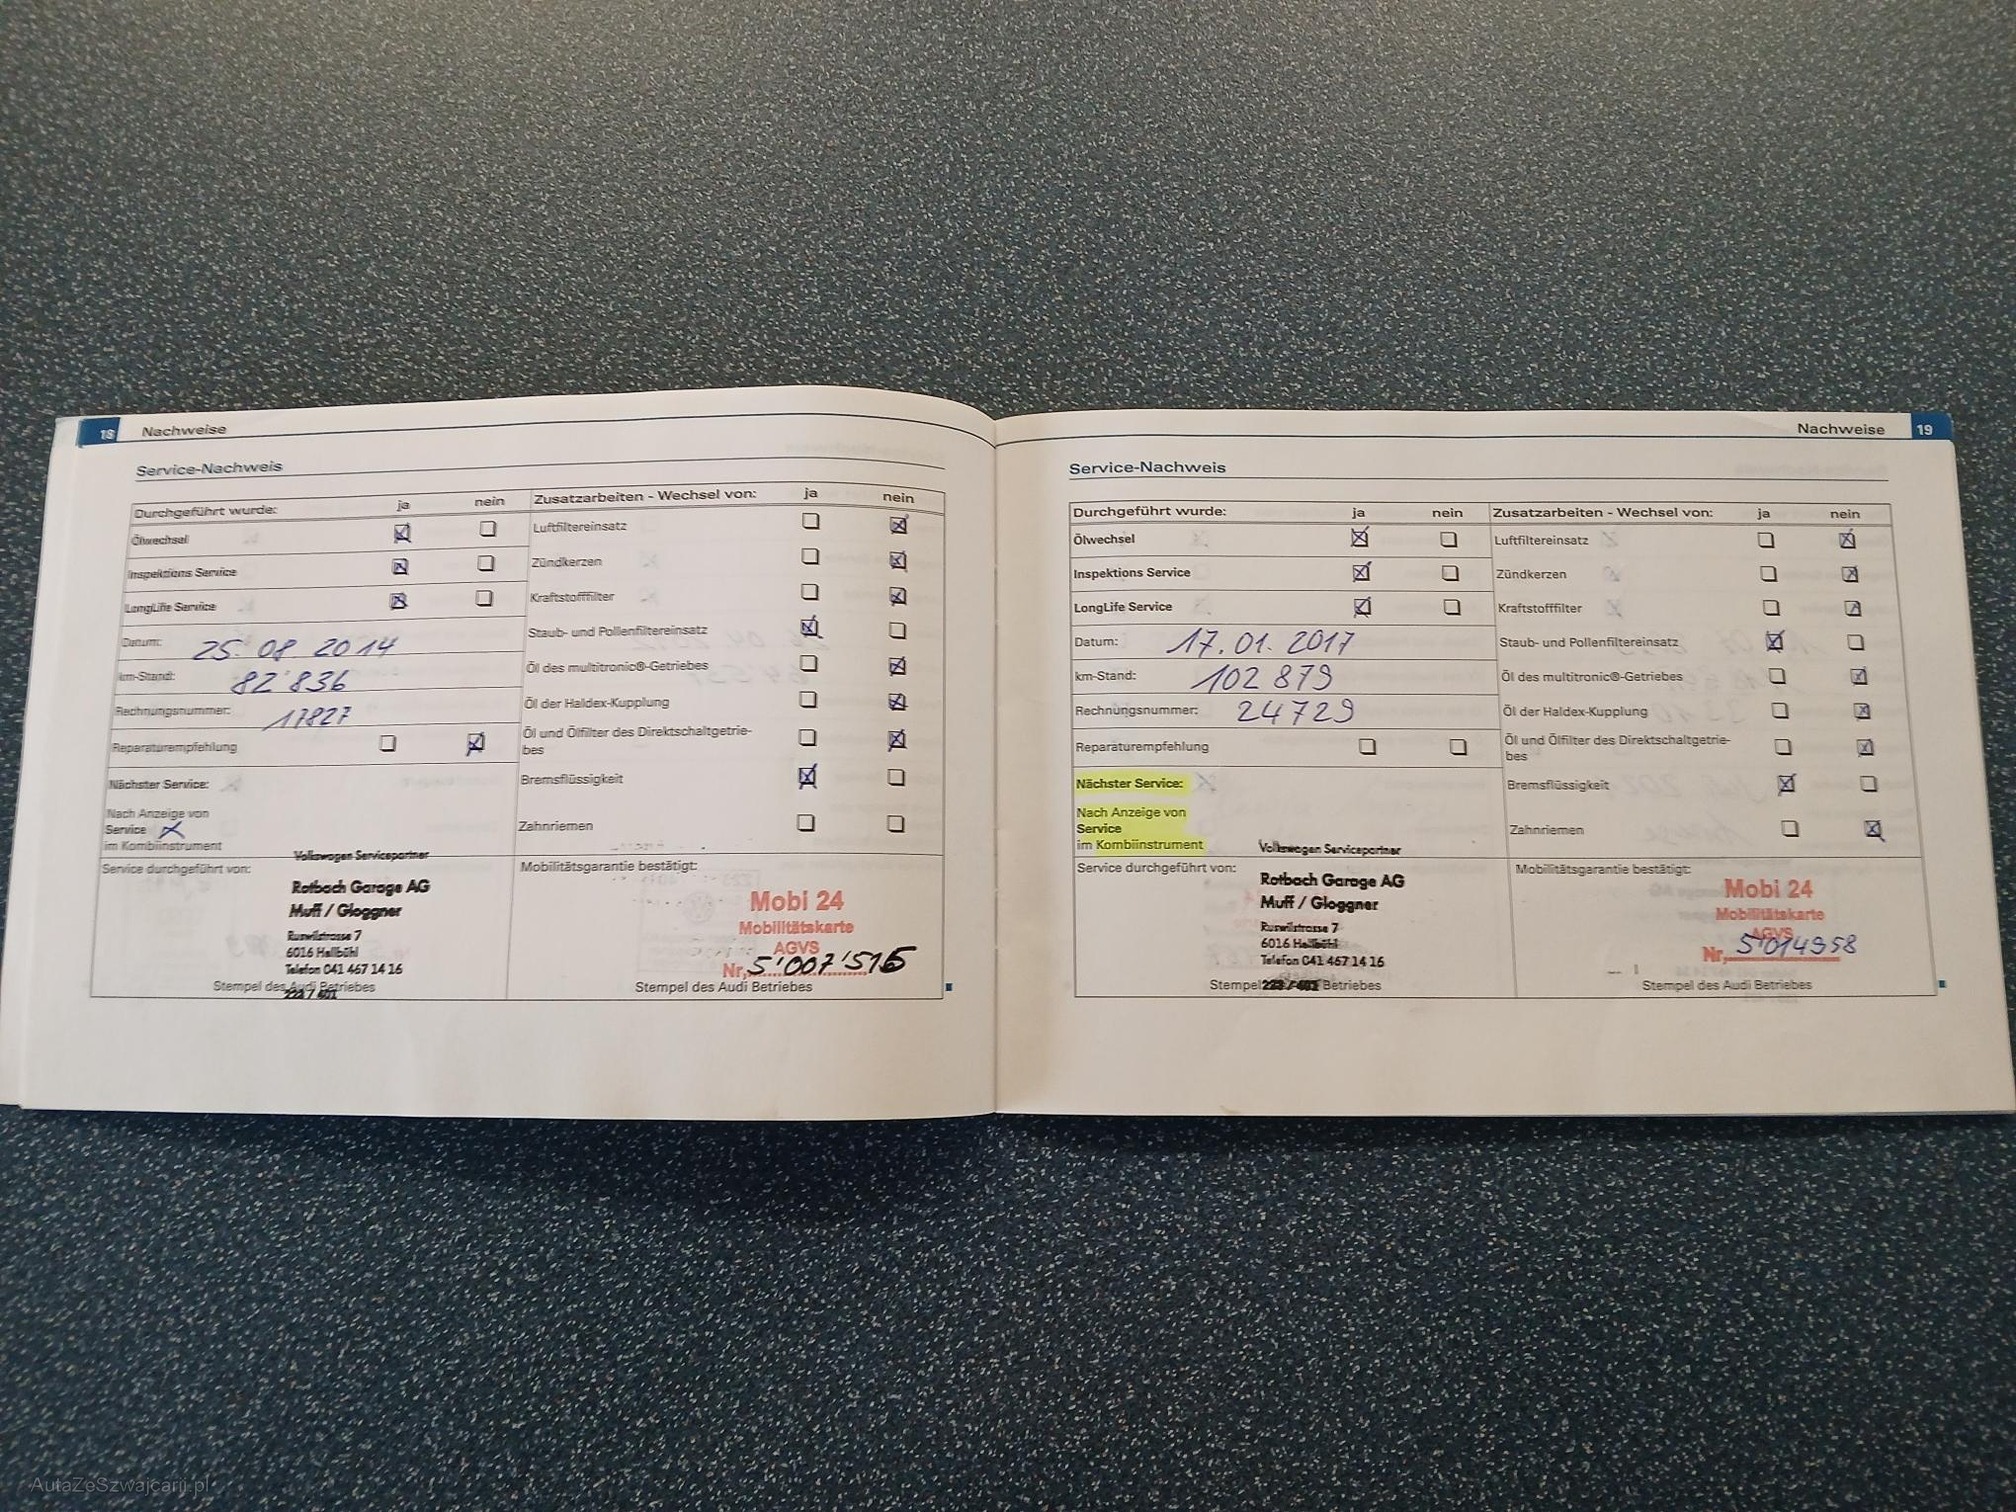 18 Nachweise
Service-Nachweis
Durchgeführt wurde: ja nein
Ölwechsel
Inspektions Service
LongLife Service
Datum: 25.08 2014
km-Stand: 82'836
Rechnungsnummer: 17827
Reparaturempfehlung
Nächster Service:
Nach Anzeige von
Service
im Kombiinstrument
Zusatzarbeiten - Wechsel von: ja nein
Luftfiltereinsatz
Zündkerzen
Kraftstofffilter
Staub- und Pollenfiltereinsatz
Öl des multitronic®-Getriebes
Öl der Haldex-Kupplung
Öl und Ölfilter des Direktschaltgetrie-
bes
Bremsflüssigkeit
Zahnriemen
Service durchgeführt von:
Volkswagen Servicepartner
Rotbach Garage AG
Muff / Gloggner
Ruswilstrasse 7
6016 Hellbühl
Telefon 041 467 14 16
Stempel des Audi Betriebes
Mobilitätsgarantie bestätigt:
Mobi 24
Mobilitätskarte
AGVS
Nr. 5'007'515
Stempel des Audi Betriebes
Nachweise 19
Service-Nachweis
Durchgeführt wurde: ja nein
Ölwechsel
Inspektions Service
LongLife Service
Datum: 17.01.2017
km-Stand: 102 879
Rechnungsnummer: 24729
Reparaturempfehlung
Nächster Service:
Nach Anzeige von
Service
im Kombiinstrument
Zusatzarbeiten - Wechsel von: ja nein
Luftfiltereinsatz
Zündkerzen
Kraftstofffilter
Staub- und Pollenfiltereinsatz
Öl des multitronic®-Getriebes
Öl der Haldex-Kupplung
Öl und Ölfilter des Direktschaltgetrie-
bes
Bremsflüssigkeit
Zahnriemen
Service durchgeführt von:
Volkswagen Servicepartner
Rotbach Garage AG
Muff / Gloggner
Ruswilstrasse 7
6016 Hellbühl
Telefon 041 467 14 16
Stempel Betriebes
Mobilitätsgarantie bestätigt:
Mobi 24
Mobilitätskarte
AGVS
Nr. 5'014958
Stempel des Audi Betriebes
AutaZeSzwajcarii.pl